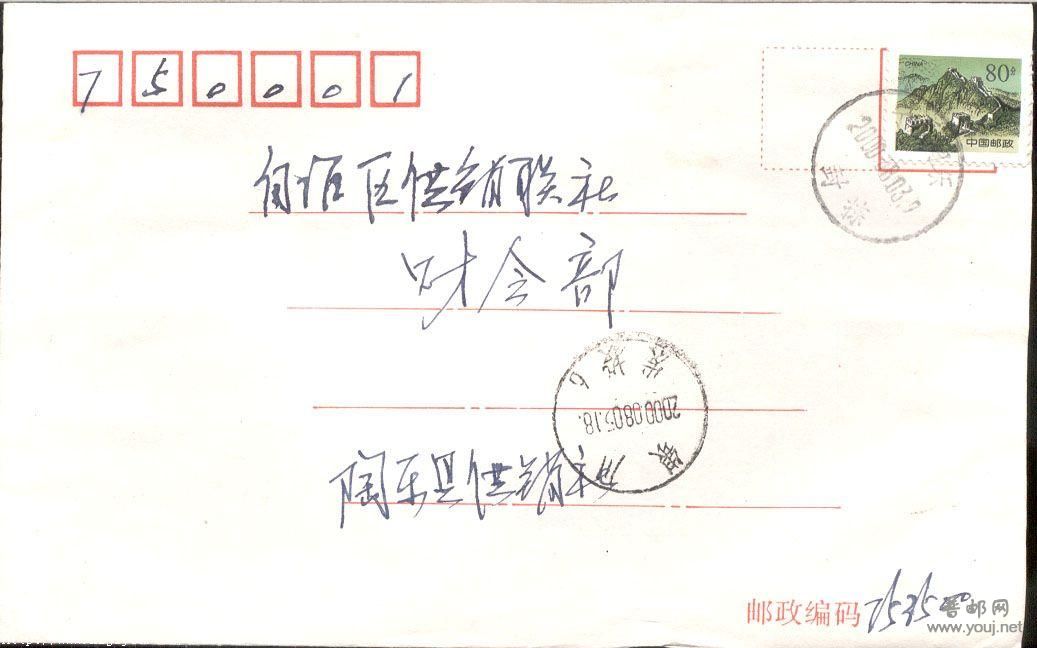 750001
CHINA
80分
中国邮政
2000.08.03.9
自治区供销联社
财会部
2000.08.03.18.
银川
6
陶乐县供销社
邮政编码 753500
晋邮网
www.youj.net